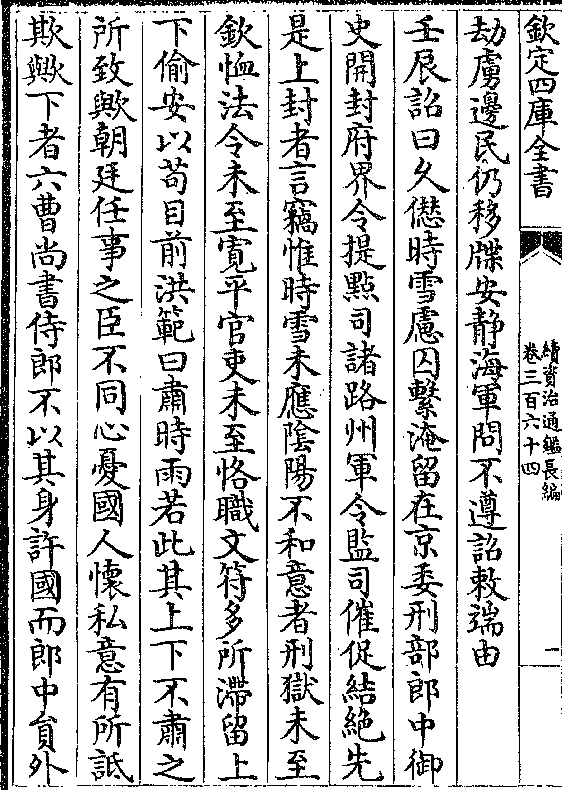 欽定四庫全書
續資治通鑑長編
卷三百六十四
一
劫虜邊民仍移牒安静海軍問不遵詔敕端由
壬辰詔曰久僽時雪慮囚繫淹留在京委刑部郎中御
史開封府界令提點司諸路州軍令監司催促結絶先
是上封者言竊惟時雪未應隂陽不和意者刑獄未至
欽恤法令未至寛平官吏未至恪職文符多所滯留上
下偷安以苟目前洪範曰肅時雨若此其上下不肅之
所致歟朝廷任事之臣不同心憂國人懷私意有所詆
欺歟下者六曹尚書侍郎不以其身許國而郎中員外